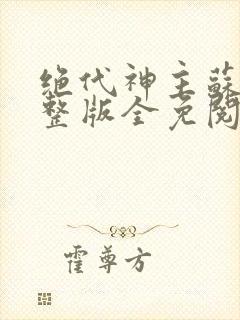 绝代神主蘇
整版全免閱
霍尊方